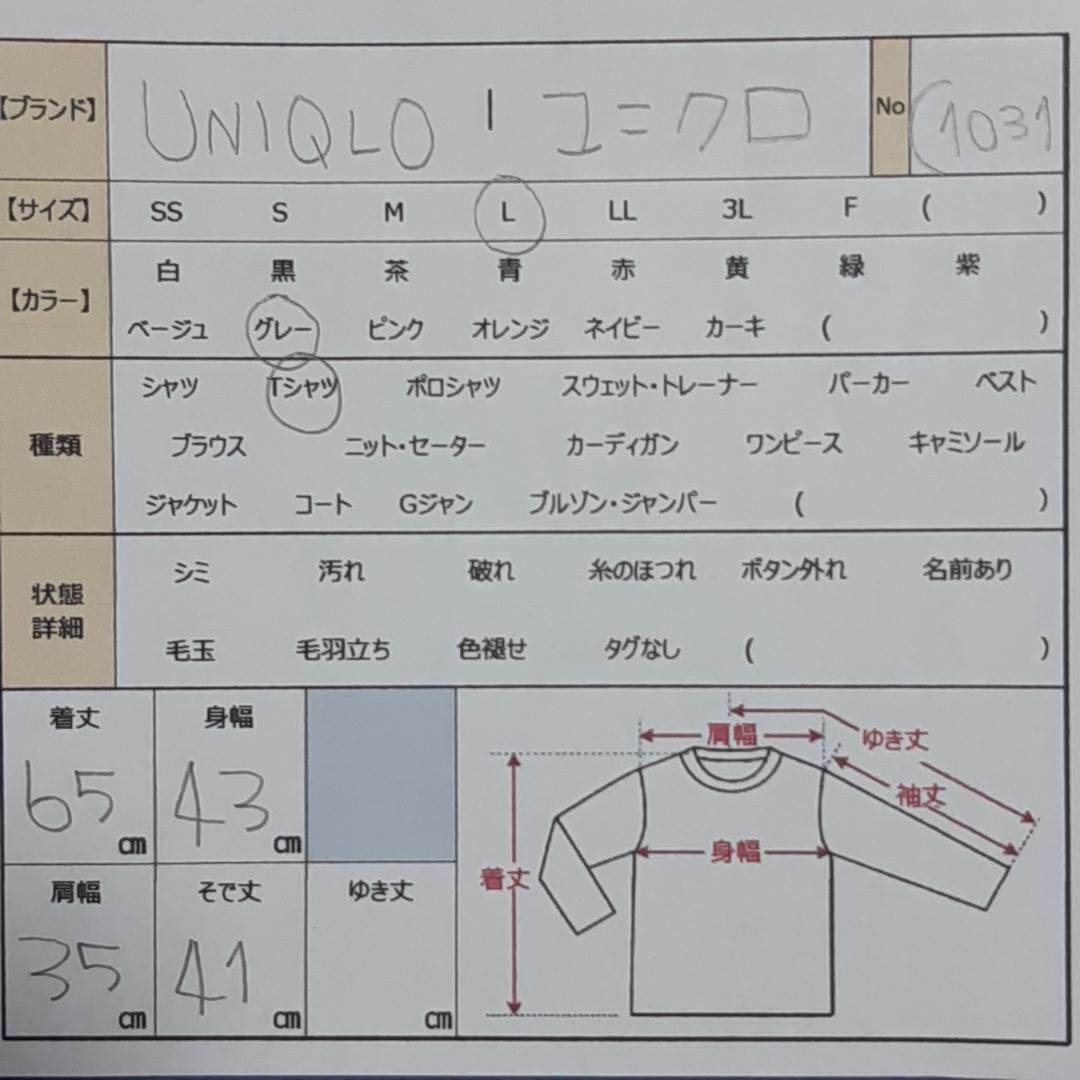 【ブランド】 UNIQLO | ユニクロ No (1031
【サイズ】 SS S M L LL 3L F ( )
白 黒 茶 青 赤 黄 緑 紫
【カラー】
ベージュ グレー ピンク オレンジ ネイビー カーキ ( )
シャツ Tシャツ ポロシャツ スウェット・トレーナー パーカー ベスト
種類 ブラウス ニット・セーター カーディガン ワンピース キャミソール
ジャケット コート Gジャン ブルゾン・ジャンパー ( )
シミ 汚れ 破れ 糸のほつれ ボタン外れ 名前あり
状態
詳細
毛玉 毛羽立ち 色褪せ タグなし ( )
着丈 身幅
65 cm 43 cm
肩幅 そで丈 ゆき丈
35 cm 41 cm cm
肩幅 ゆき丈
袖丈
身幅
着丈